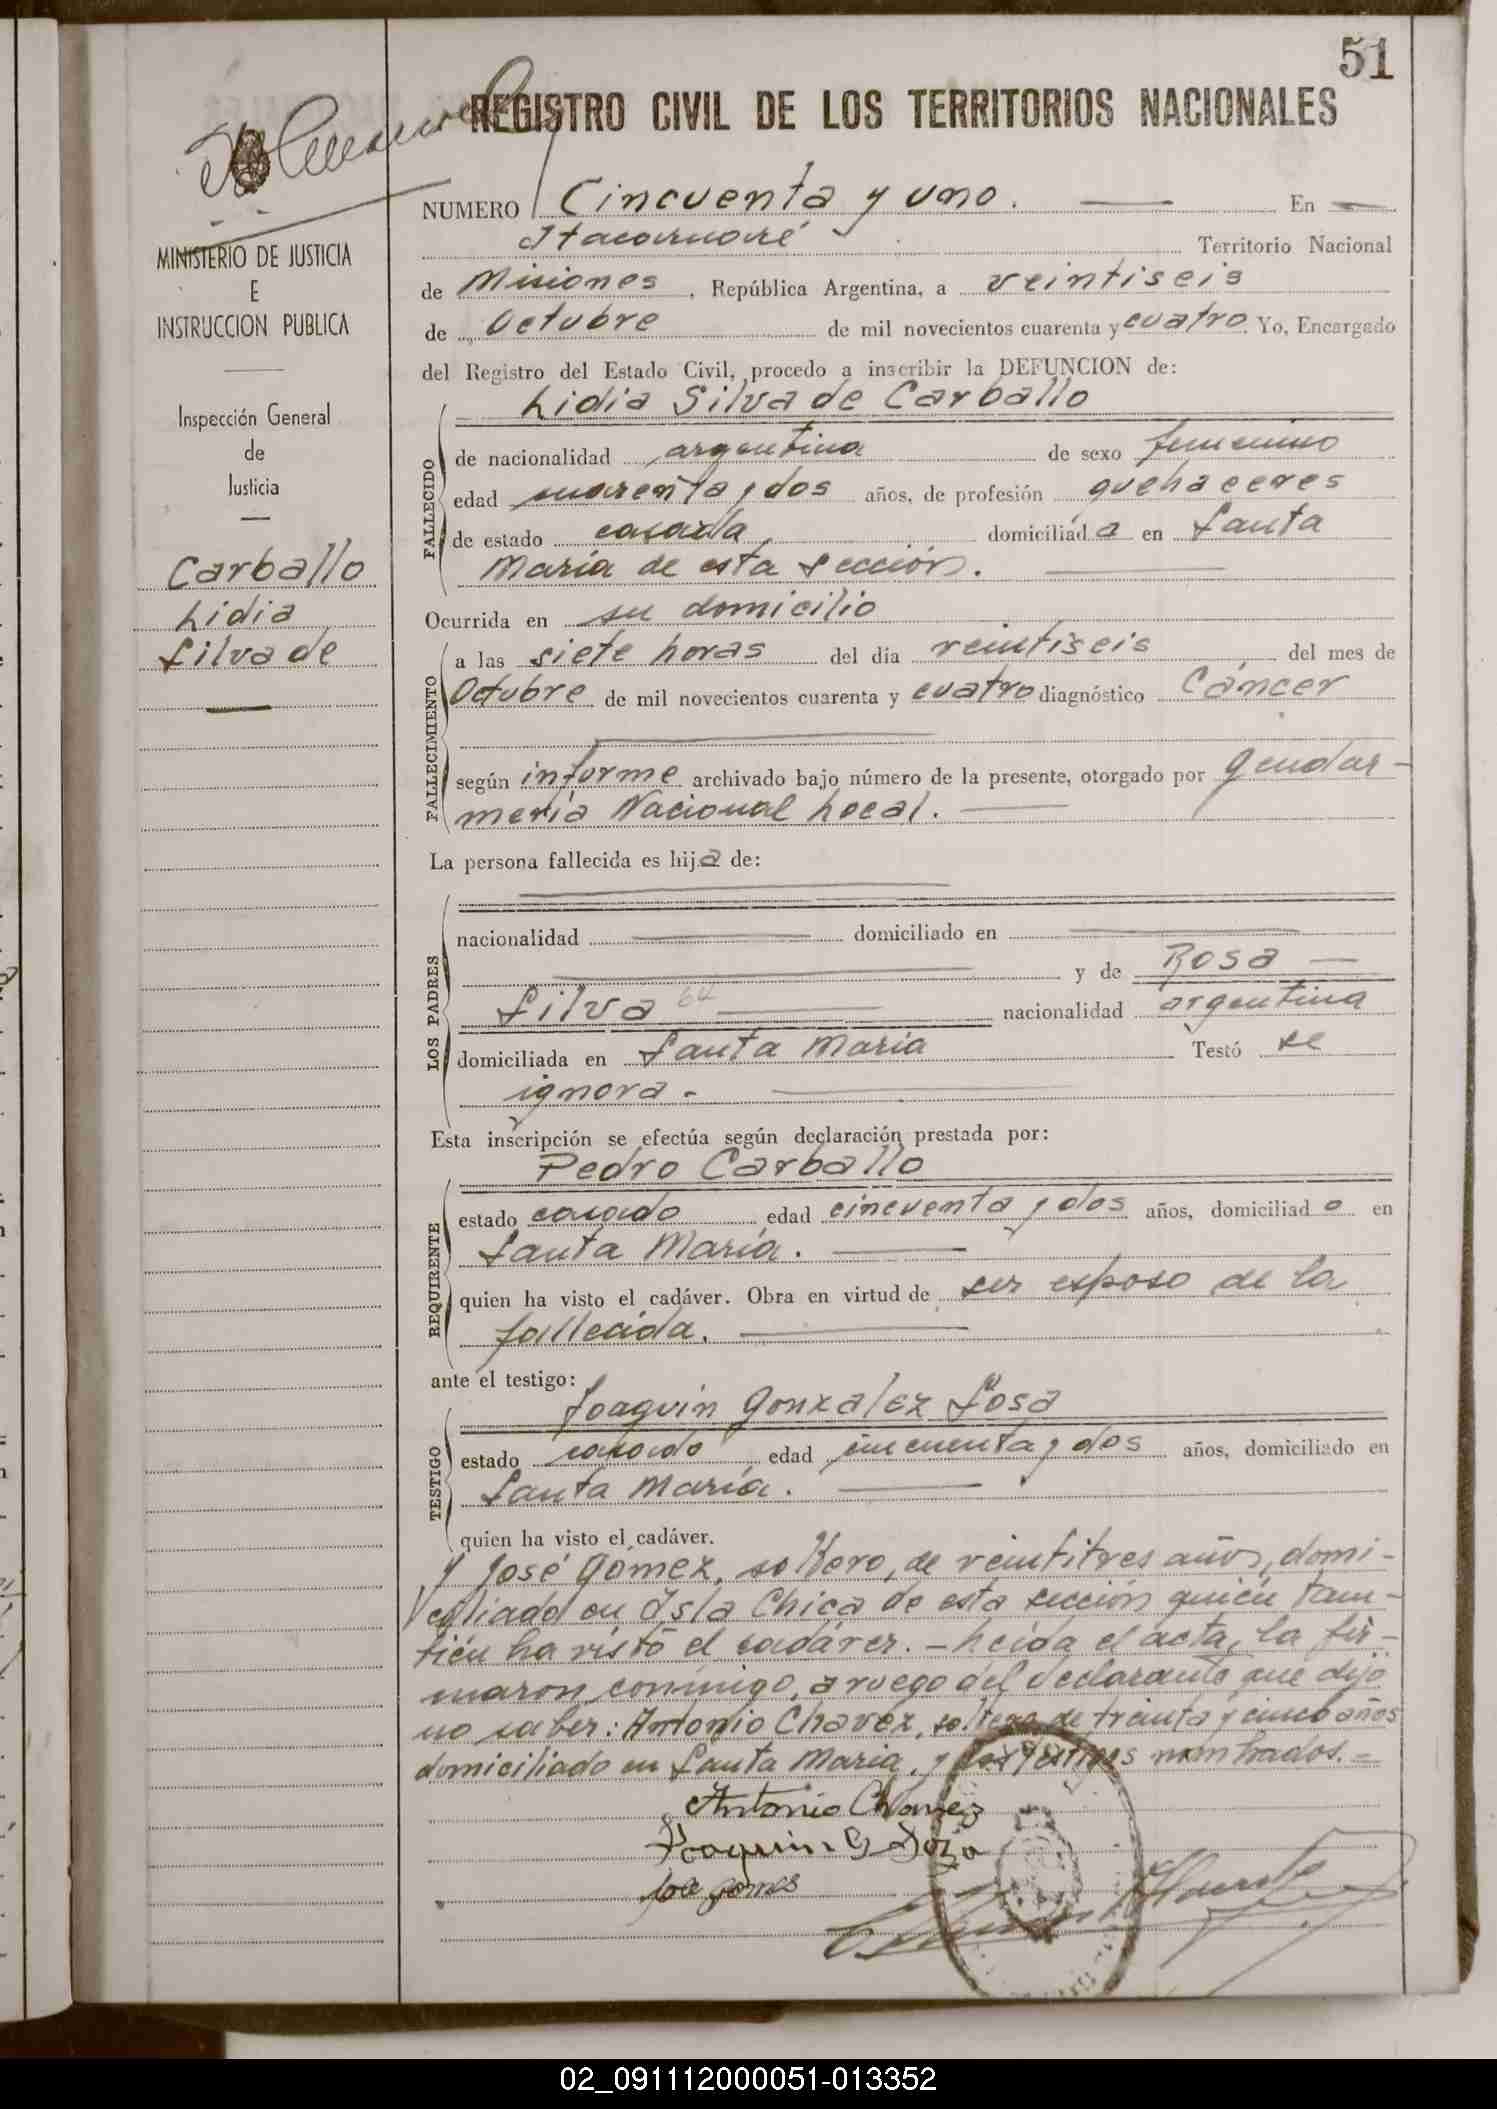 51
REGISTRO CIVIL DE LOS TERRITORIOS NACIONALES
MINISTERIO DE JUSTICIA
E
INSTRUCCION PUBLICA
Inspección General
de
Justicia
Carballo
Lidia
Silva de
NUMERO Cincuenta y uno. En
Itacaruaré Territorio Nacional
de Misiones, República Argentina, a veintiseis
de Octubre de mil novecientos cuarenta y cuatro. Yo, Encargado
del Registro del Estado Civil, procedo a inscribir la DEFUNCION de:
Lidia Silva de Carballo
FALLECIDO
de nacionalidad argentina de sexo femenino
edad cuarenta y dos años, de profesión quehaceres
de estado casada domiciliada en Santa
María de esta Sección.
Ocurrida en su domicilio
FALLECIMIENTO
a las siete horas del día veintiseis del mes de
Octubre de mil novecientos cuarenta y cuatro diagnóstico Cáncer
según informe archivado bajo número de la presente, otorgado por Gendar-
mería Nacional Local.
La persona fallecida es hija de:
LOS PADRES
nacionalidad domiciliado en
y de Rosa
Silva 64 nacionalidad argentina
domiciliada en Santa María Testó se
ignora.
Esta inscripción se efectúa según declaración prestada por:
Pedro Carballo
REQUIRENTE
estado casado edad cincuenta y dos años, domiciliado en
Santa María.
quien ha visto el cadáver. Obra en virtud de ser esposo de la
fallecida.
ante el testigo:
Joaquin Gonzalez Sosa
TESTIGO
estado casado edad cincuenta y dos años, domiciliado en
Santa María.
quien ha visto el cadáver.
y José Gómez, soltero, de veintitres años, domi-
ciliado en Isla Chica de esta sección quien tam-
bién ha visto el cadáver. - Leída el acta, la fir-
maron conmigo, a ruego del declarante que dijo
no saber: Antonio Chavez, soltero de treinta y cinco años
domiciliado en Santa María, y los testigos nombrados.=
Antonio Chavez
Joaquin G Soza
Jose Gomes
02_091112000051-013352